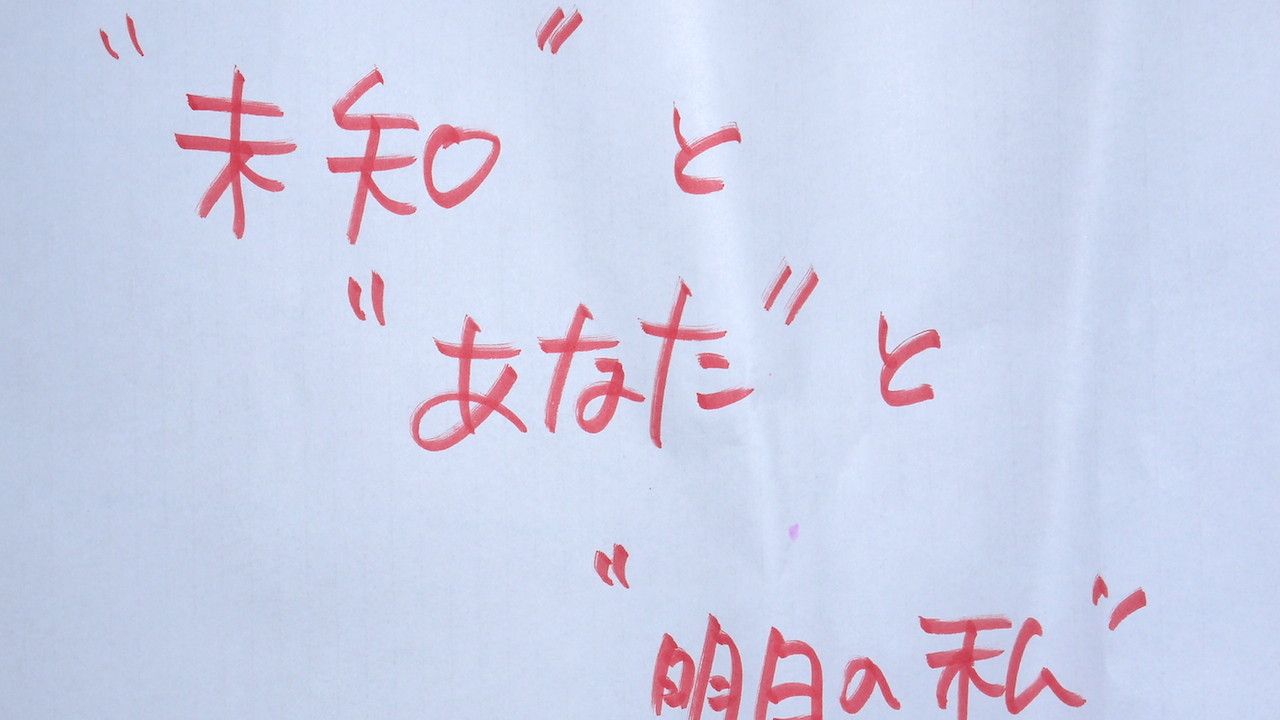 "未知"と
"あなた"と
"明日の私"